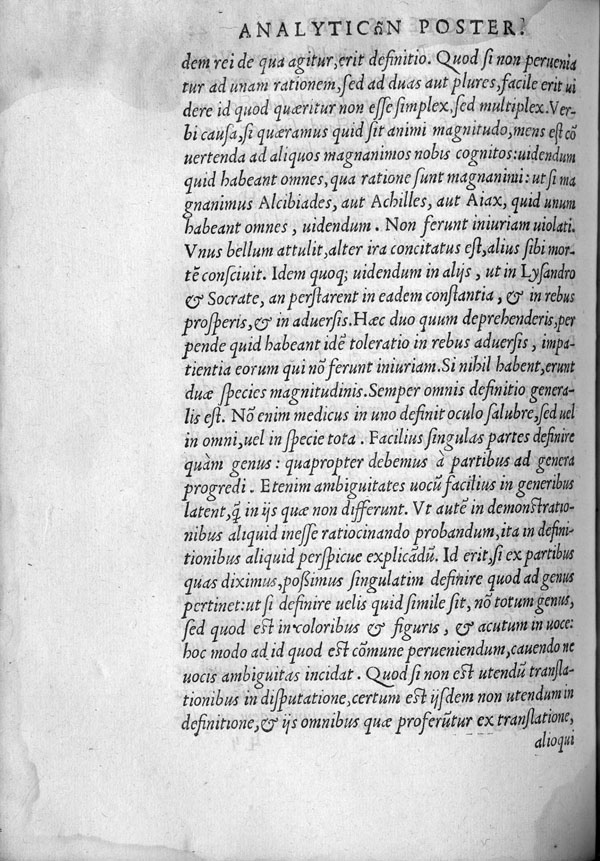 ANALYTICωN POSTER.
dem rei de qua agitur, erit definitio. Quod si non peruenia
tur ad unam rationem, sed ad duas aut plures, facile erit ui
dere id quod quæritur non esse simplex, sed multiplex. Ver-
bi causa, si quæramus quid sit animi magnitudo, mens est cō
uertenda ad aliquos magnanimos nobis cognitos: uidendum
quid habeant omnes, qua ratione sunt magnanimi: ut si ma
gnanimus Alcibiades, aut Achilles, aut Aiax, quid unum
habeant omnes, uidendum. Non ferunt iniuriam uiolati.
Vnus bellum attulit, alter ira concitatus est, alius sibi mor-
tē consciuit. Idem quoq; uidendum in alijs, ut in Lysandro
& Socrate, an perstarent in eadem constantia, & in rebus
prosperis, & in aduersis. Hæc duo quum deprehenderis, per
pende quid habeant idē toleratio in rebus aduersis, impa-
tientia eorum qui nō ferunt iniuriam. Si nihil habent, erunt
duæ species magnitudinis. Semper omnis definitio genera-
lis est. Nō enim medicus in uno definit oculo salubre, sed uel
in omni, uel in specie tota. Facilius singulas partes definire
quàm genus: quapropter debemus à partibus ad genera
progredi. Etenim ambiguitates uocū facilius in generibus
latent, q̄ in ijs quæ non differunt. Vt autē in demonstratio-
nibus aliquid inesse ratiocinando probandum, ita in defini-
tionibus aliquid perspicue explicādū. Id erit, si ex partibus
quas diximus, possimus singulatim definire quod ad genus
pertinet: ut si definire uelis quid simile sit, nō totum genus,
sed quod est in coloribus & figuris, & acutum in uoce:
hoc modo ad id quod est cōmune perueniendum, cauendo ne
uocis ambiguitas incidat. Quod si non est utendū transla-
tionibus in disputatione, certum est ijsdem non utendum in
definitione, & ijs omnibus quæ proferūtur ex translatione,
alioqui